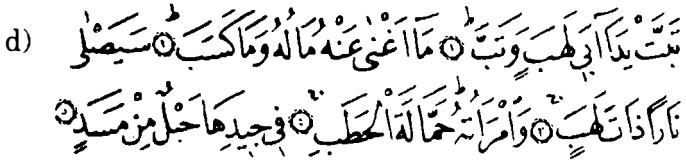 d) تَبَّتْ يَدَآ اَبِيْ لَهَبٍ وَّتَبَّ ؕ ۝۱ مَآ اَغْنٰى عَنْهُ مَالُهٗ وَمَا كَسَبَ ؕ ۝۲ سَيَصْلٰى
نَارًا ذَاتَ لَهَبٍ ۝۳ وَّامْرَاَتُهٗ ؕ حَمَّالَةَ الْحَطَبِ ۝۴ فِيْ جِيْدِهَا حَبْلٌ مِّنْ مَّسَدٍ ۝۵